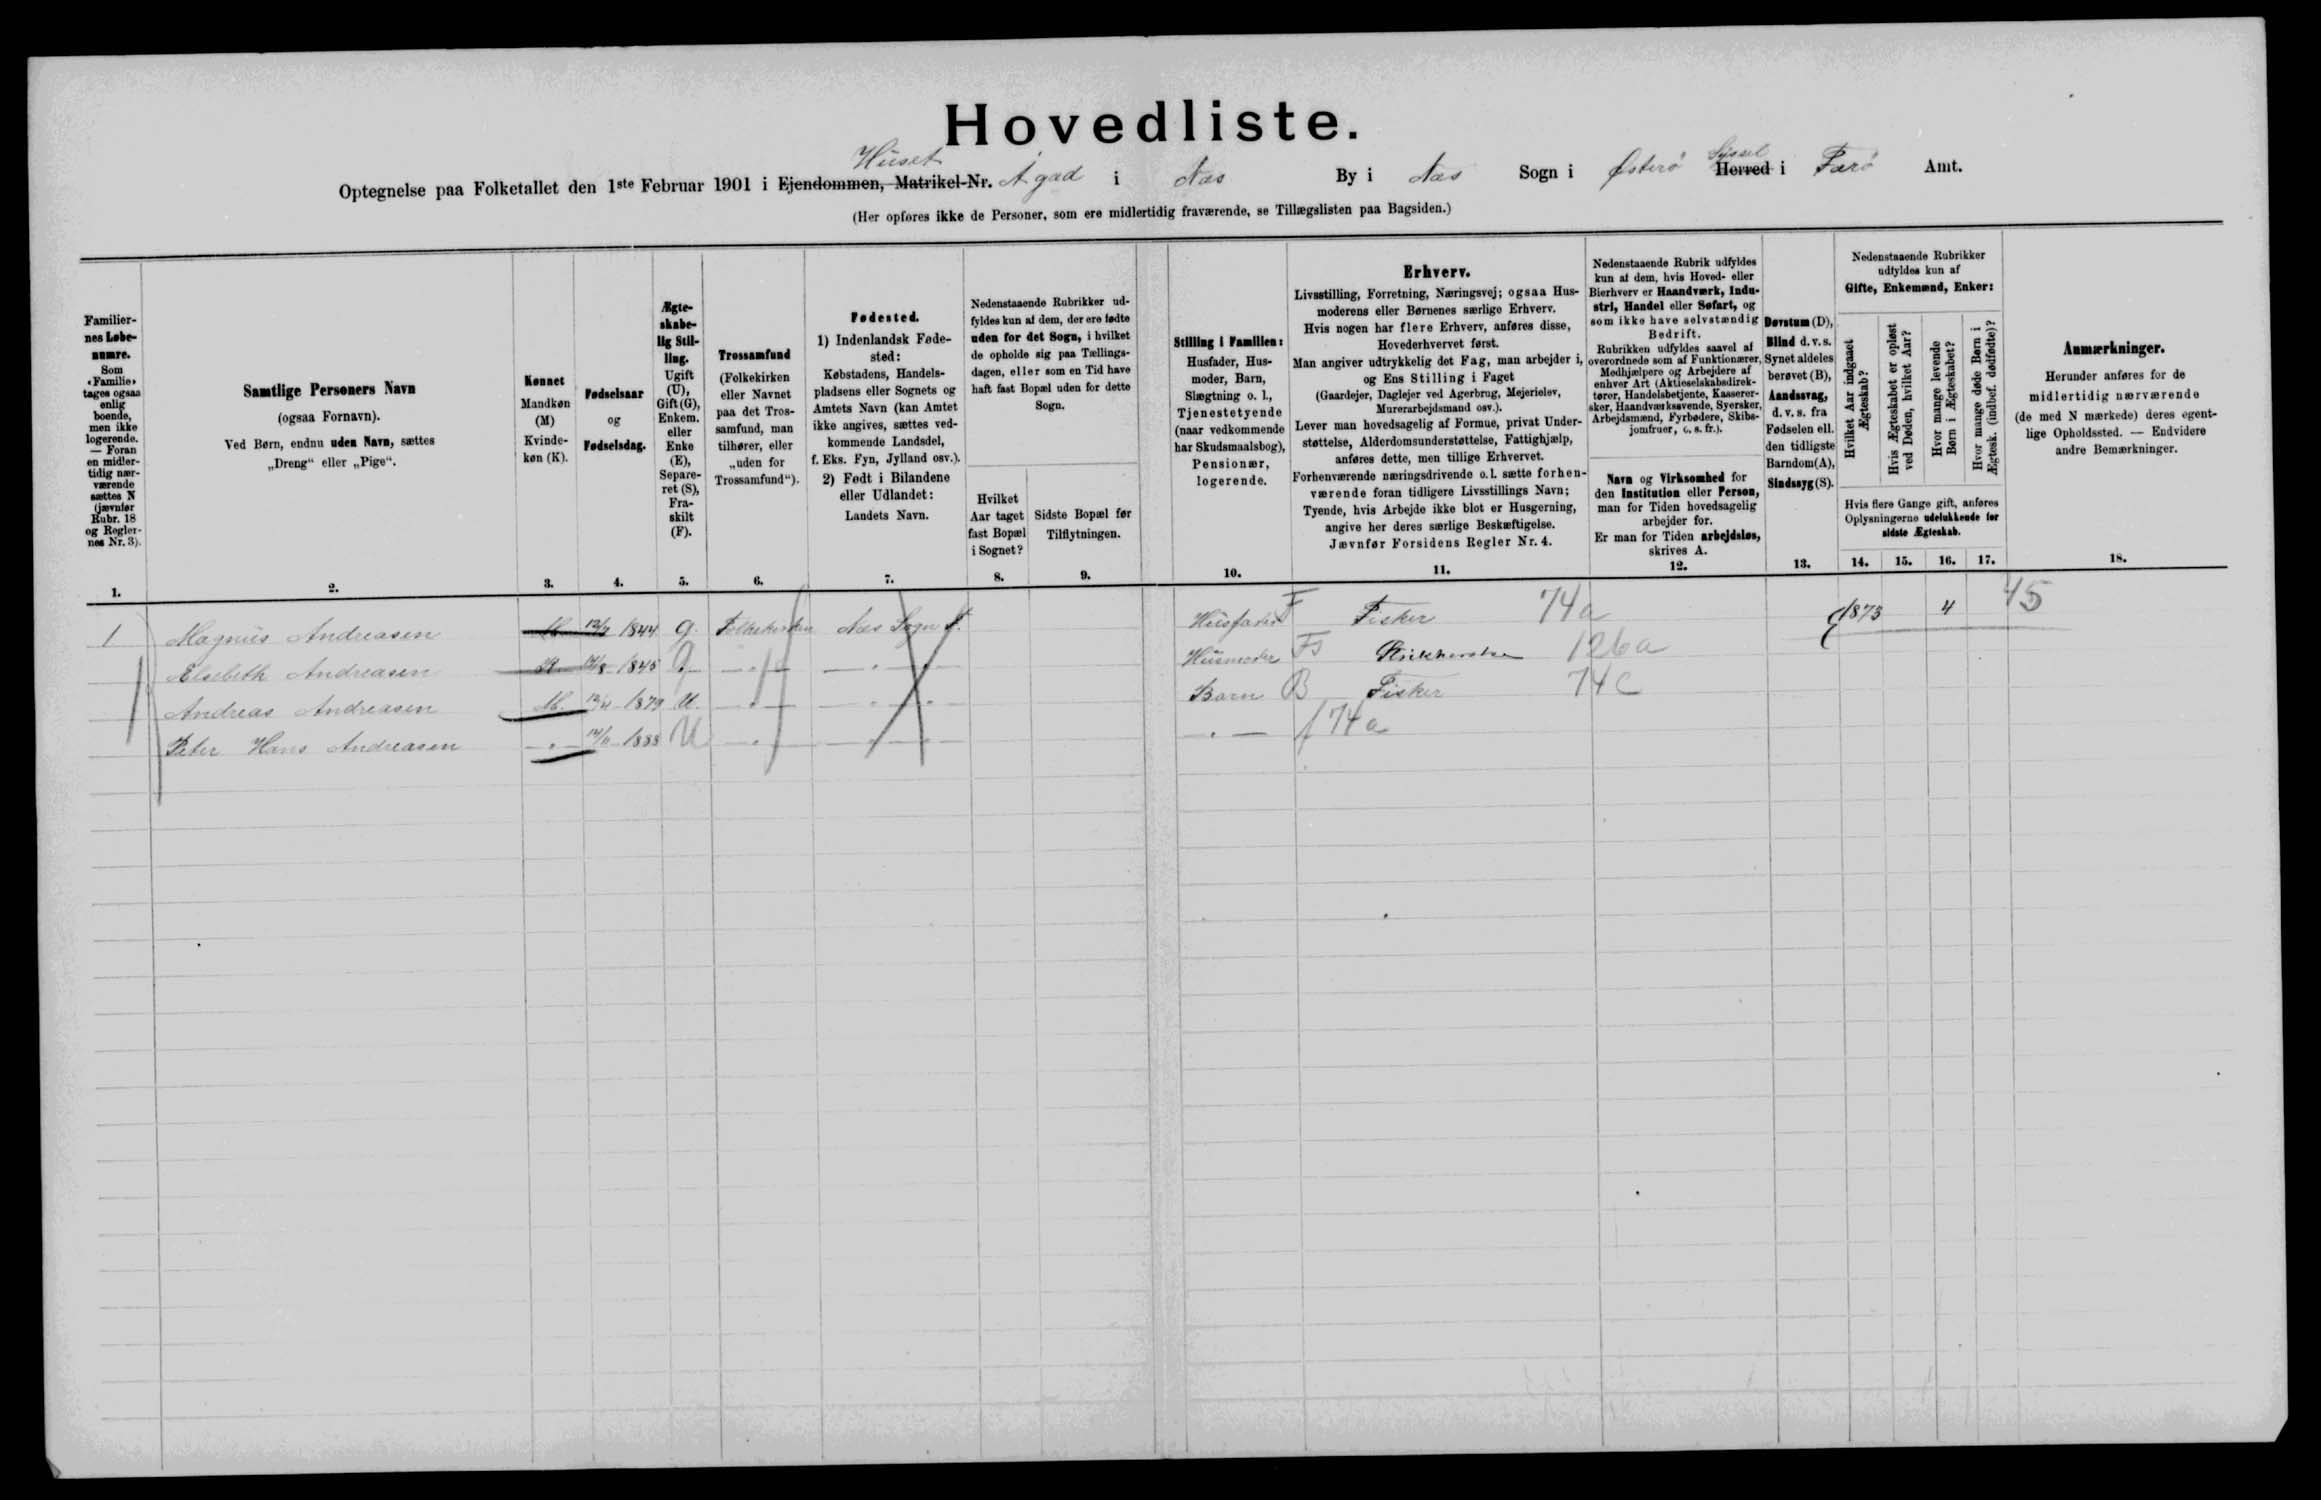 Hovedliste.
Huset Syssel
Optegnelse paa Folketallet den 1ste Februar 1901 i Ejendommen, Matrikel-Nr. Ágad i Næs By i Næs Sogn i Østerø Herred i Færø Amt.
(Her opføres ikke de Personer, som ere midlertidig fraværende, se Tillægslisten paa Bagsiden.)
Familier-
nes Løbe-
numre.
Som
«Familie»
tages ogsaa
enlig
boende,
men ikke
logerende.
— Foran
en midler-
tidig nær-
værende
sættes N
(jævnfør
Rubr. 18
og Regler-
nes Nr. 3).
1.
Samtlige Personers Navn
(ogsaa Fornavn).
Ved Børn, endnu uden Navn, sættes
„Dreng“ eller „Pige“.
2.
Kønnet
Mandkøn
(M)
Kvinde-
køn (K).
3.
Fødselsaar
og
Fødselsdag.
4.
Ægte-
skabe-
lig Stil-
ling.
Ugift
(U),
Gift (G),
Enkem.
eller
Enke
(E),
Separe-
ret (S),
Fra-
skilt
(F).
5.
Trossamfund
(Folkekirken
eller Navnet
paa det Tros-
samfund, man
tilhører, eller
„uden for
Trossamfund“).
6.
Fødested.
1) Indenlandsk Føde-
sted:
Købstadens, Handels-
pladsens eller Sognets og
Amtets Navn (kan Amtet
ikke angives, sættes ved-
kommende Landsdel,
f. Eks. Fyn, Jylland osv.).
2) Født i Bilandene
eller Udlandet:
Landets Navn.
7.
Nedenstaaende Rubrikker ud-
fyldes kun af dem, der ere fødte
uden for det Sogn, i hvilket
de opholde sig paa Tællings-
dagen, eller som en Tid have
haft fast Bopæl uden for dette
Sogn.
Hvilket
Aar taget
fast Bopæl
i Sognet?
8.
Sidste Bopæl før
Tilflytningen.
9.
Stilling i Familien:
Husfader, Hus-
moder, Barn,
Slægtning o. l.,
Tjenestetyende
(naar vedkommende
har Skudsmaalsbog),
Pensionær,
logerende.
10.
Erhverv.
Livsstilling, Forretning, Næringsvej; ogsaa Hus-
moderens eller Børnenes særlige Erhverv.
Hvis nogen har flere Erhverv, anføres disse,
Hovederhvervet først.
Man angiver udtrykkelig det Fag, man arbejder i,
og Ens Stilling i Faget
(Gaardejer, Daglejer ved Agerbrug, Mejerielev,
Murerarbejdsmand osv.).
Lever man hovedsagelig af Formue, privat Under-
støttelse, Alderdomsunderstøttelse, Fattighjælp,
anføres dette, men tillige Erhvervet.
Forhenværende næringsdrivende o. l. sætte forhen-
værende foran tidligere Livsstillings Navn;
Tyende, hvis Arbejde ikke blot er Husgerning,
angive her deres særlige Beskæftigelse.
Jævnfør Forsidens Regler Nr. 4.
11.
Nedenstaaende Rubrik udfyldes
kun af dem, hvis Hoved- eller
Bierhverv er Haandværk, Indu-
stri, Handel eller Søfart, og
som ikke have selvstændig
Bedrift.
Rubrikken udfyldes saavel af
overordnede som af Funktionærer,
Medhjælpere og Arbejdere af
enhver Art (Aktieselskabsdirek-
tører, Handelsbetjente, Kasserer-
sker, Haandværkssvende, Syersker,
Arbejdsmænd, Fyrbødere, Skibs-
jomfruer, o. s. fr.).
Navn og Virksomhed for
den Institution eller Person,
man for Tiden hovedsagelig
arbejder for.
Er man for Tiden arbejdsløs,
skrives A.
12.
Døvstum (D),
Blind d. v. s.
Synet aldeles
berøvet (B),
Aandssvag,
d. v. s. fra
Fødselen ell.
den tidligste
Barndom (A),
Sindssyg (S).
13.
Nedenstaaende Rubrikker
udfyldes kun af
Gifte, Enkemænd, Enker:
Hvilket Aar indgaaet
Ægteskab?
Hvis Ægteskabet er opløst
ved Døden, hvilket Aar?
Hvor mange levende
Børn i Ægteskabet?
Hvor mange døde Børn i
Ægtesk. (indbef. dødfødte)?
Hvis flere Gange gift, anføres
Oplysningerne udelukkende for
sidste Ægteskab.
14. 15. 16. 17.
Anmærkninger.
Herunder anføres for de
midlertidig nærværende
(de med N mærkede) deres egent-
lige Opholdssted. — Endvidere
andre Bemærkninger.
18.
1 Magnus Andreasen M. 1844 G. Folkekirken Næs Sogn Husfader F Fisker 74a 1873 4 45
Elsebeth Andreasen K 1845 G. —„— —„— Husmoder 126a
Andreas Andreasen M. 1879 U. —„— —„— Barn B Fisker 74c
Peter Hans Andreasen —„— 14/11 1888 U —„— —„— —„— f 74a